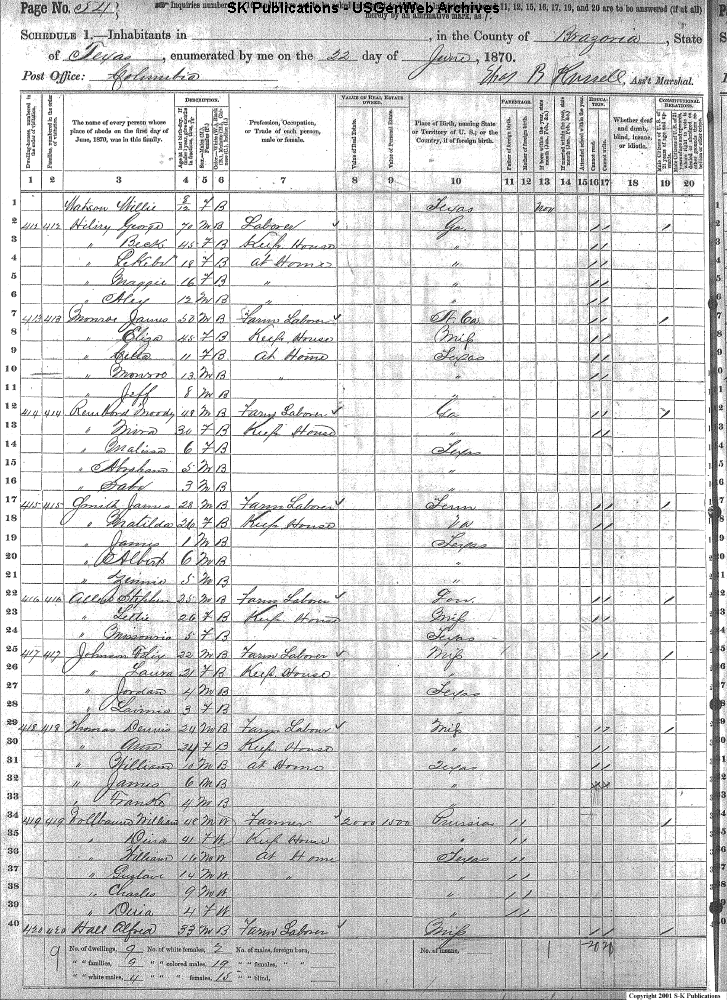 Page No. 54 Inquiries numbered SK Publications USGenWeb Archives 11, 12, 15, 16, 17, 19, and 20 are to be answered (if at all)
hereby by an affirmative mark, as /.
SCHEDULE 1.—Inhabitants in , in the County of Brazoria, State
of Texas, enumerated by me on the 22 day of June, 1870.
Post Office: Columbia Chas B Russell, Ass't Marshal.
DESCRIPTION. VALUE OF REAL ESTATE OWNED. PARENTAGE. EDUCATION. CONSTITUTIONAL RELATIONS.
The name of every person whose place of abode on the first day of June, 1870, was in this family.
Profession, Occupation, or Trade of each person, male or female.
Value of Real Estate. Value of Personal Estate.
Place of Birth, naming State or Territory of U. S.; or the Country, if of foreign birth.
Father of foreign birth. Mother of foreign birth.
Attended school within the year. Cannot read. Cannot write.
Whether deaf and dumb, blind, insane, or idiotic.
1 2 3 4 5 6 7 8 9 10 11 12 13 14 15 16 17 18 19 20
1 Watson Willie 8/12 F B Texas Nov
2 411 412 George 70 M B Laborer Ga / / /
3 " Beck 45 F B Keep House " / /
4 " 18 F B At Home " / /
5 " Maggie 16 F B " " / /
6 " Aley 12 M B " " / /
7 413 413 Monroe James 50 M B Farm Laborer N. Ca / / /
8 " Eliza 45 F B Keep House Miss / /
9 " Cella 11 F B At Home Texas / /
10 " Monroe 13 M B " " / /
11 " Jeff 8 M B "
12 414 414 Moody 48 M B Farm Laborer Ga / / /
13 " Mira 30 F B Keep House " / /
14 " Malissa 6 F B Texas
15 " Abraham 5 M B "
16 " Gabe 3 M B "
17 415 415 Smith James 28 M B Farm Laborer Tenn / / /
18 " Matilda 26 F B Keep House Va / /
19 " James 1 M B Texas
20 " Albert 6 M B "
21 " 5 M B "
22 416 416 Allen Stephen 25 M B Farm Laborer / / /
23 " Lettie 26 F B Keep House Miss / /
24 " Missouria 5 F B Texas
25 417 417 Johnson 22 M B Farm Laborer Miss / / /
26 " Laura 21 F B Keep House "
27 " Jordan 4 M B Texas
28 " 3 F B "
29 418 418 Thomas Dennis 24 M B Farm Labour Miss / / /
30 " Ann 24 F B Keep House " / /
31 " William 10 M B At Home Texas / /
32 " James 6 M B "
33 " Franks 4 M B "
34 419 419 Wollbaum William 48 M W Farmer 2000 1500 Prussia / / /
35 " Dina 41 F W Keep House " / /
36 " William 16 M W At Home Texas / /
37 " Gustave 14 M W " " / /
38 " Charles 9 M W " / /
39 " Dina 4 F W " / /
40 420 420 Hall Alfred 33 M B Farm Laborer Miss / / /
9 No. of dwellings, 9 No. of white females, 2 No. of males, foreign born, No. of insane, 1 20 20
" " families, 9 " " colored males, 19 " " females, "
" " white males, 4 " " females, 15 " " blind,
Copyright 2001 S-K Publications